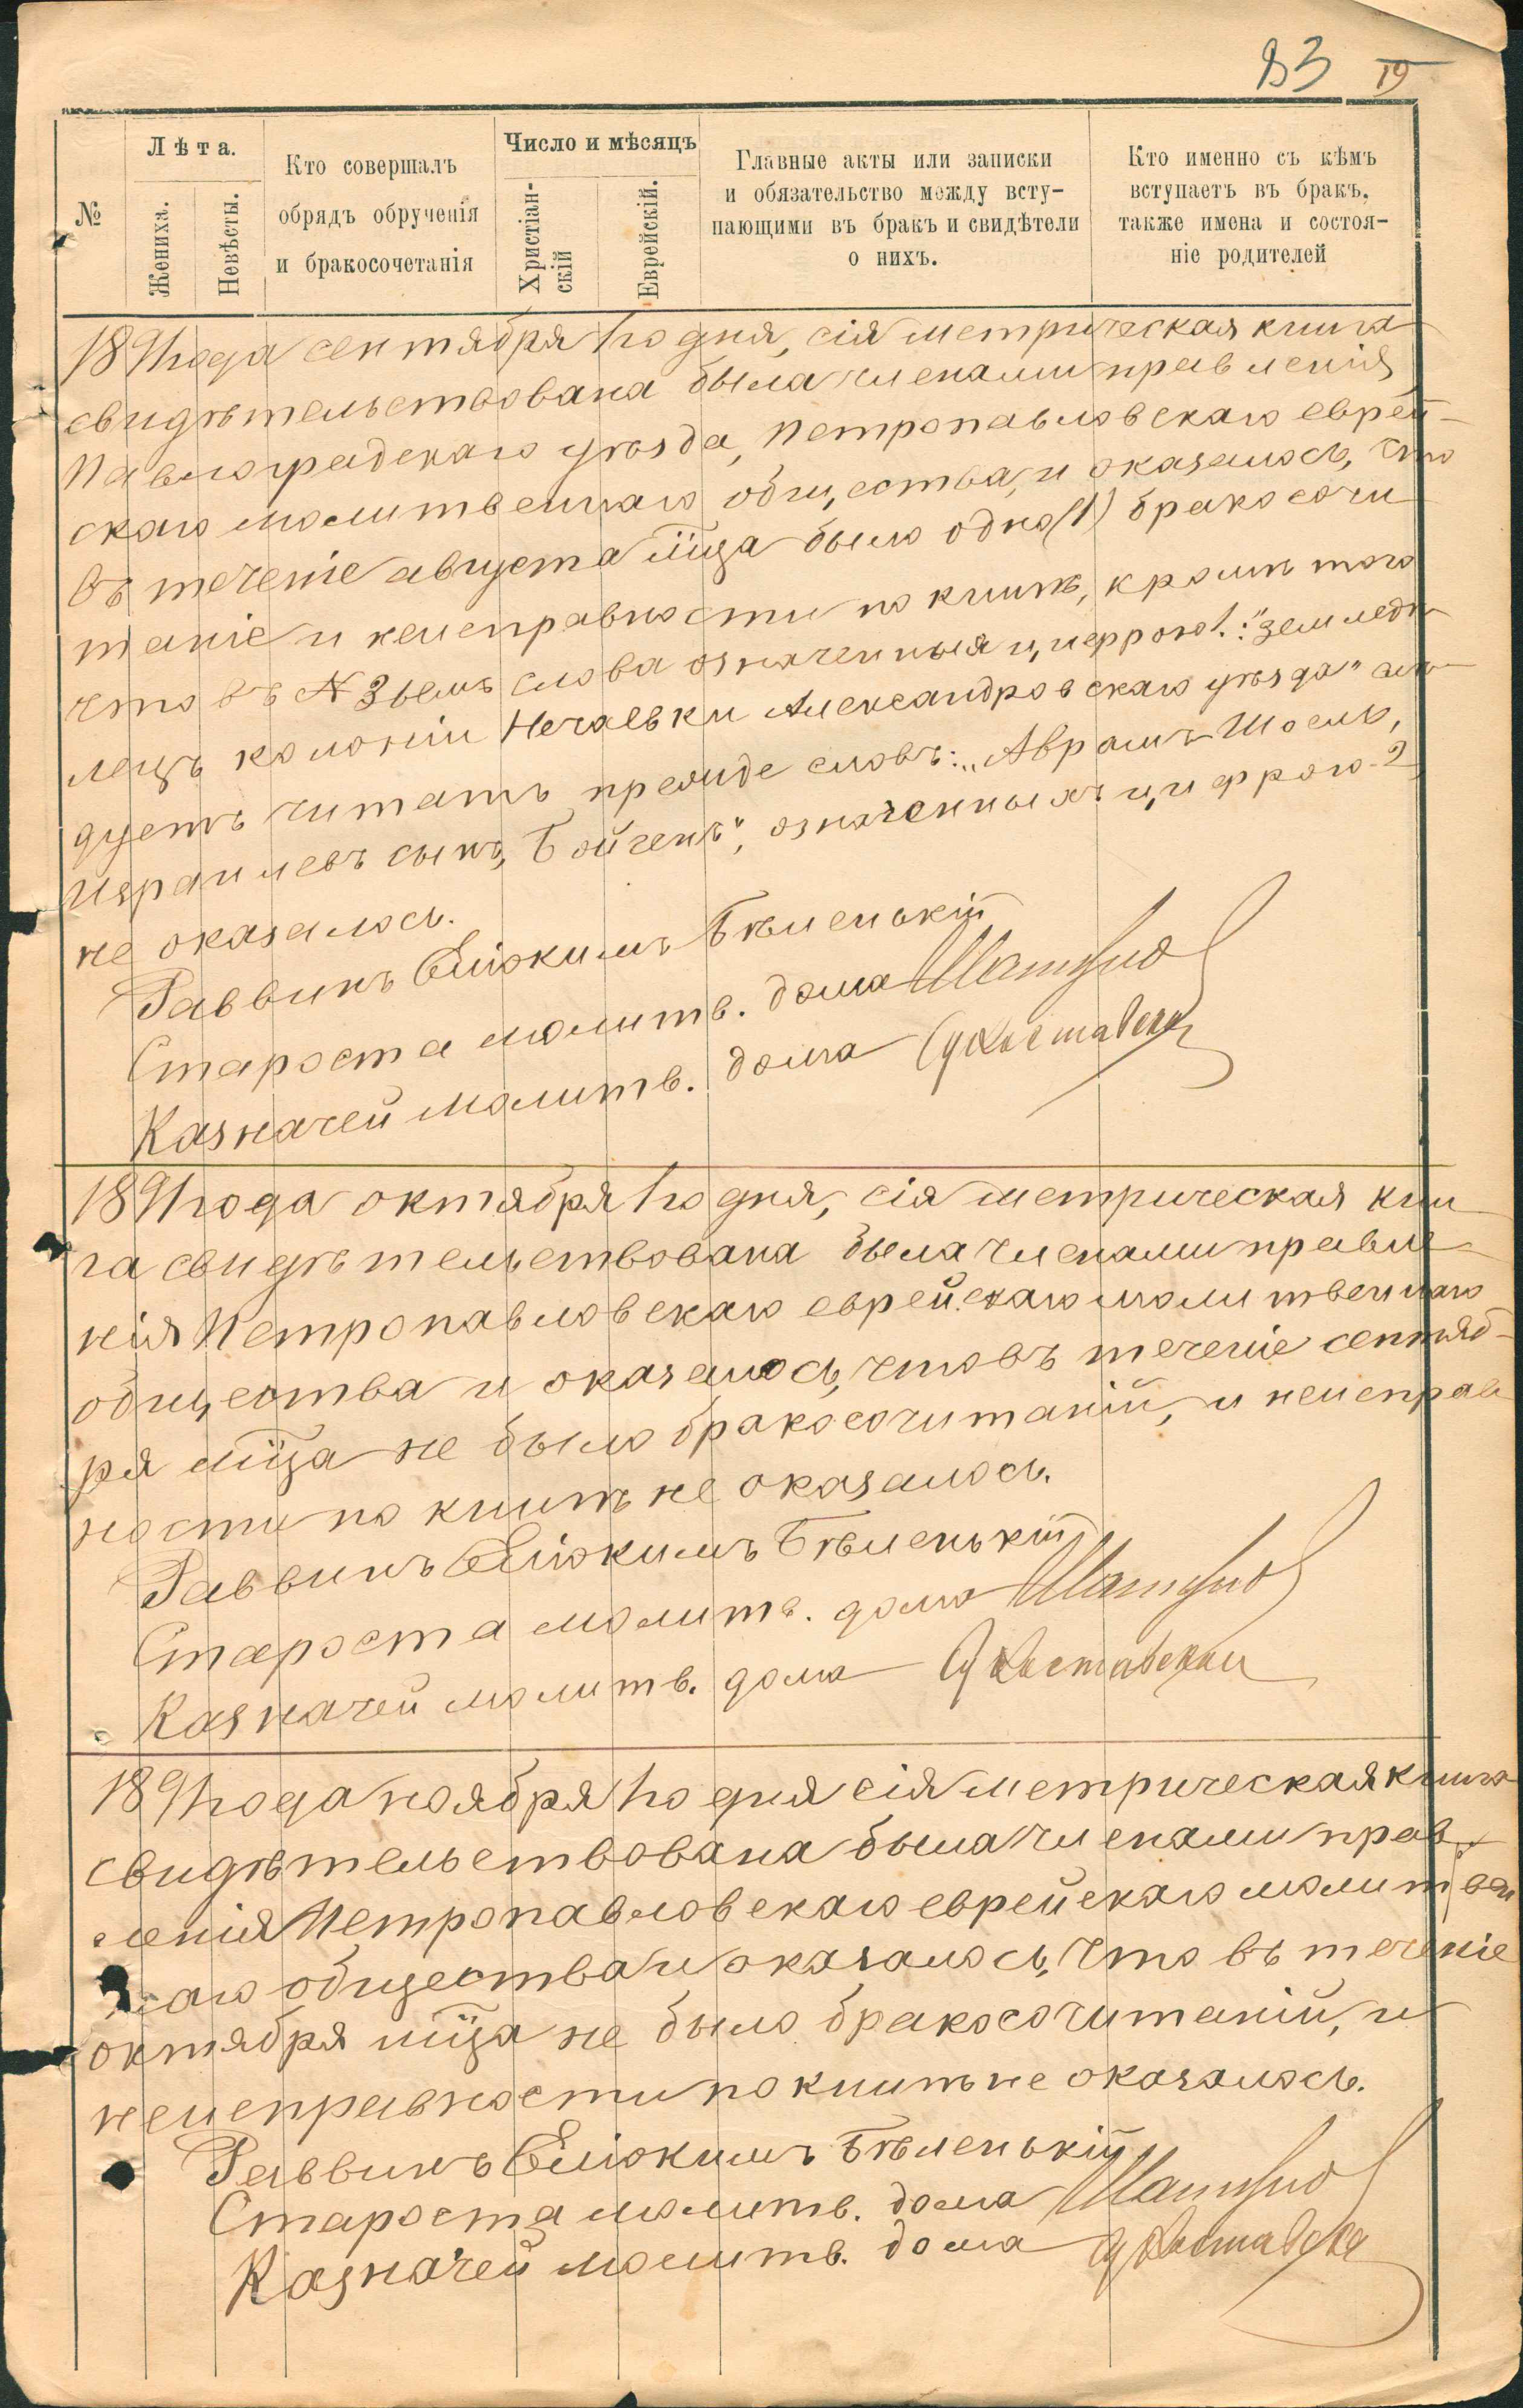 83 19
№
Лѣта.
Жениха.
Невѣсты.
Кто совершалъ
обрядъ обрученія
и бракосочетанія
Число и мѣсяцъ
Христіан-
скій
Еврейскій.
Главные акты или записки
и обязательство между всту-
пающими въ бракъ и свидѣтели
о нихъ.
Кто именно съ кѣмъ
вступаетъ въ бракъ,
также имена и состоя-
ніе родителей
1891 года сентября 1го дня, сія метрическая книга
свидѣтельствована была членами правленія
Павлоградскаго уѣзда, Петропавловскаго еврей-
скаго молитвеннаго общества, и оказалось, что
въ теченіе августа мѣца было одно (1) бракосочи
таніе и неисправности по книгѣ, кромѣ того
что въ № 3ьемъ слова означенныя цифрою 1.: "земледѣ
лецъ колоніи Нечаевки Александровскаго уѣзда" слѣ
дуетъ читать прежде словъ: "Аврамъ-Іосель,
Израилевъ сынъ, Бойченъ", означенныхъ цифрою 2,
не оказалось.
Раввинъ Еліокимъ Бѣленькій
Староста молитв. дома
Казначей молитв. дома
1891 года октября 1го дня, сія метрическая кни
га свидѣтельствована была членами правле
нія Петропавловскаго еврейскаго молитвеннаго
общества и оказалось, что въ теченіе сентяб-
ря мѣца не было бракосочитаній, и неисправ
ности по книгѣ не оказалось.
Раввинъ Еліокимъ Бѣленькій
Староста молитв. дома
Казначей молитв. дома
1891 года ноября 1го дня сія метрическая книга
свидѣтельствована была членами прав
ленія Петропавловскаго еврейскаго молитвен
наго общества и оказалось, что въ теченіе
октября мѣца не было бракосочитаній, и
неисправности по книгѣ не оказалось.
Раввинъ Еліокимъ Бѣленькій
Староста молитв. дома
Казначей молитв. дома